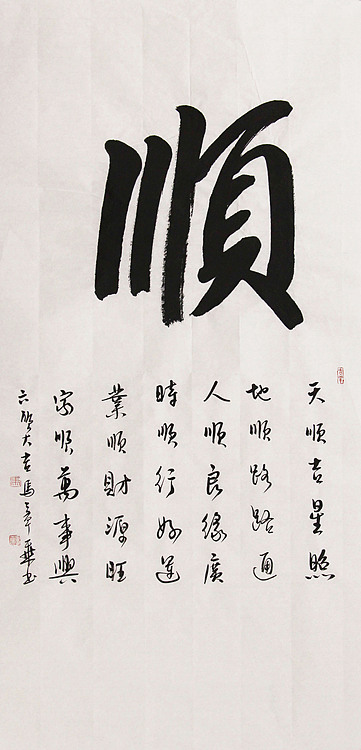 順
天順吉星照
地順路路通
人順良緣廣
時順行好運
業順財源旺
家順萬事興
大吉馬華书